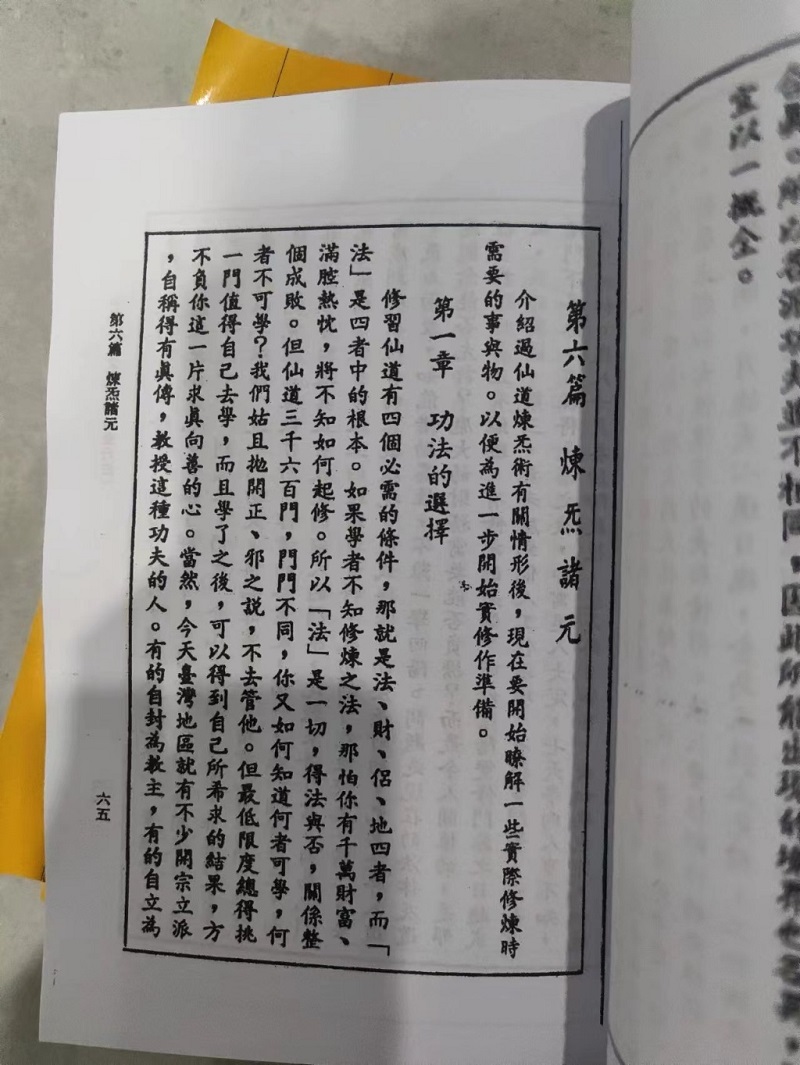 宜以一概全。
第六篇 煉炁諸元
介紹過仙道煉炁術有關情形後，現在要開始瞭解一些實際修煉時
需要的事與物。以便為進一步開始實修作準備。
第一章 功法的選擇
修習仙道有四個必需的條件，那就是法、財、侶、地四者，而「
法」是四者中的根本。如果學者不知修煉之法，那怕你有千萬財富、
滿腔熱忱，將不知如何起修。所以「法」是一切，得法與否，關係整
個成敗。但仙道三千六百門，門門不同，你又如何知道何者可學，何
者不可學？我們姑且拋開正、邪之説，不去管他。但最低限度總得挑
一門值得自己去學，而且學了之後，可以得到自己所希求的結果，方
不負你這一片求眞向善的心。當然，今天臺灣地區就有不少開宗立派
，自稱得有眞傳，教授這種功夫的人。有的自封為教主，有的自立為
第六篇 煉炁諸元
六五